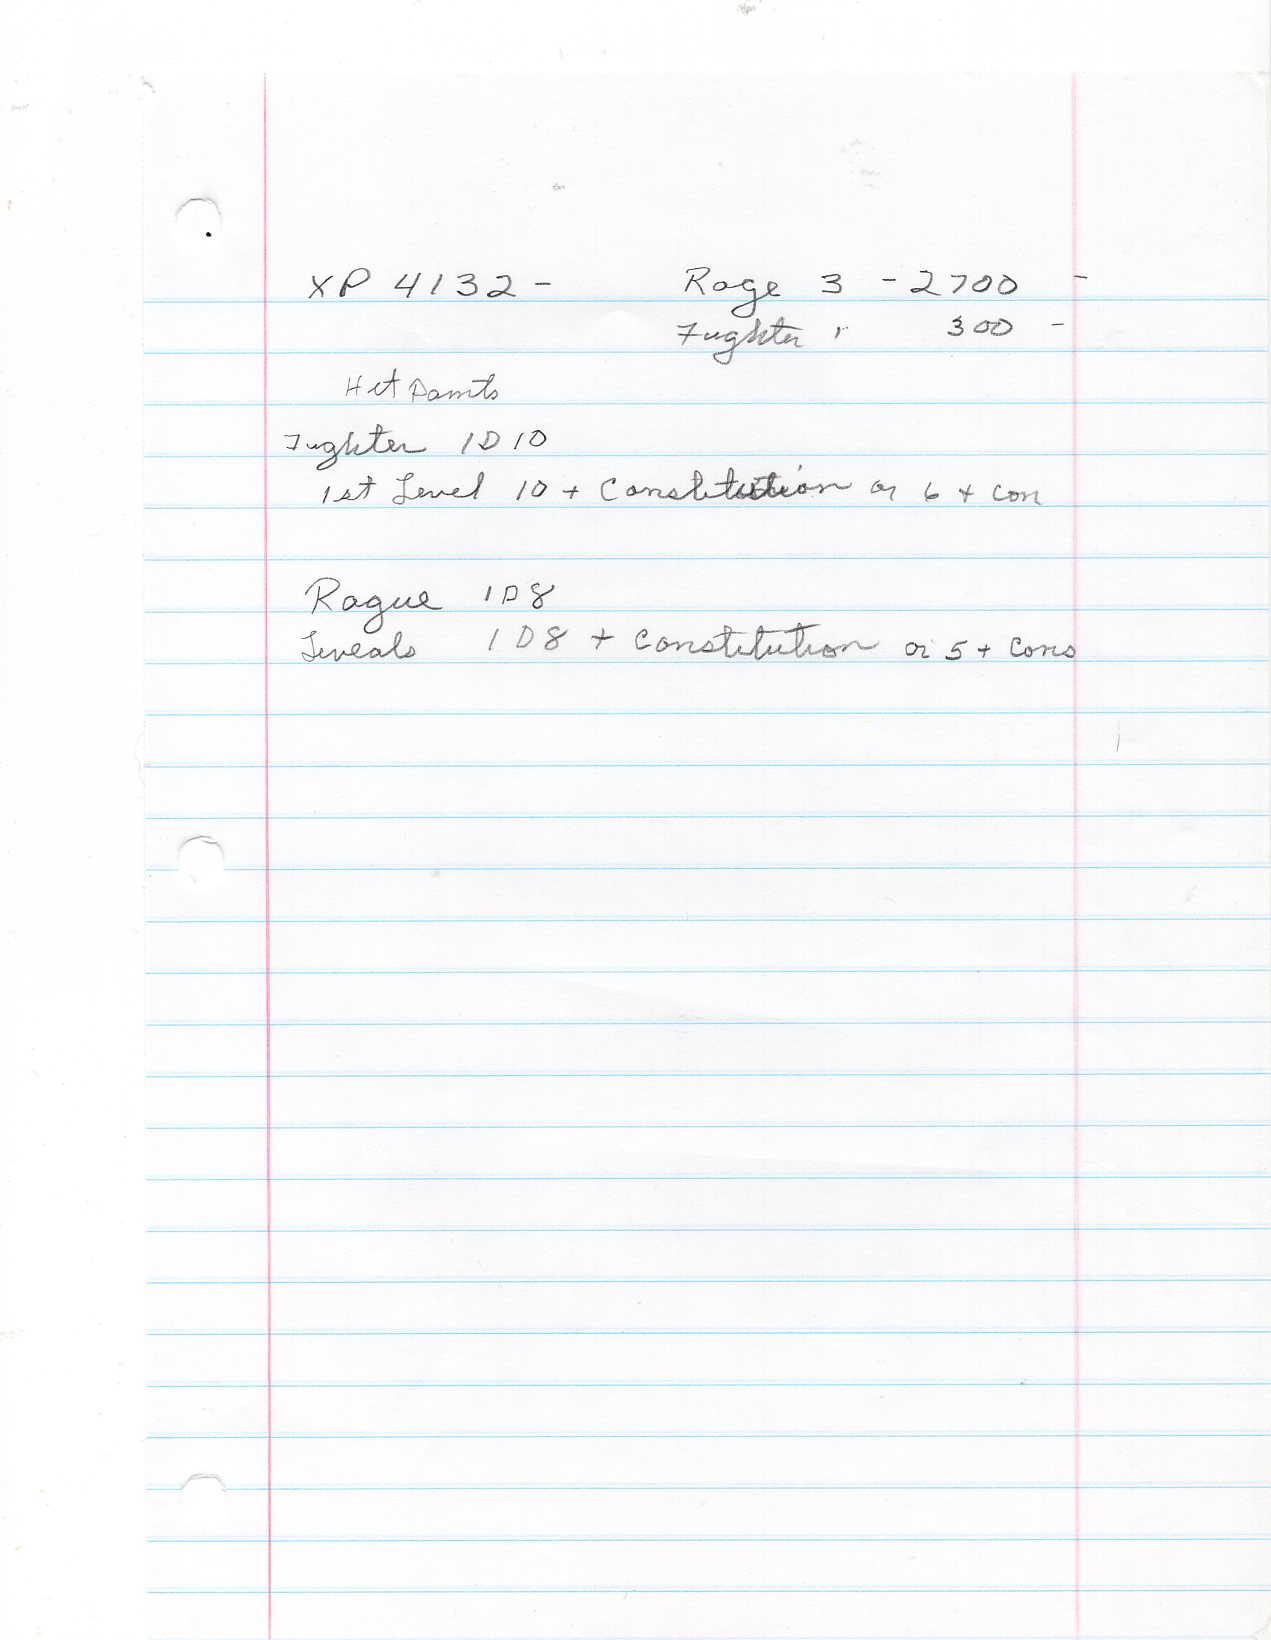 XP 4132 - Roge 3 - 2700 -
Fughter 1 300 -
Hit Points
Fughter 1D10
1st Level 10 + Constitution or 6 + Con
Rogue 1D8
Leveals 1D8 + Constitution or 5 + Cons